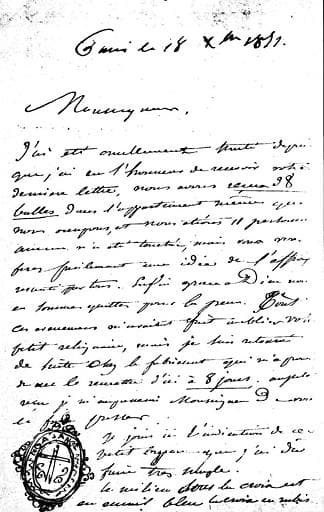 Paris le 18 Xbre 1851.
Monseigneur,
J'ai été cruellement depuis
que j'ai eu l'honneur de recevoir votre
dernière lettre, nous avons reçu 98
balles dans l'appartement même que
nous occupons, et nous étions 11 personnes
aucune n'a été touchée, mais vous vous
facilement une idée de l'effroi
Enfin grace à Dieu nous
en sommes quittes pour la peur. Tous
ces m'avaient fait oublier votre
petit reliquaire, mais je suis retourné
de suite chez le fabricant qui m'a promis
de me le remettre d'ici à 8 jours, aussitôt
reçu je m'empresserai Monseigneur de vous
le passer
Je joins ici l'indication de ce
petit que j'ai dû
faire très simple.
le milieu sous la croix est
en émail bleu la croix en rubis